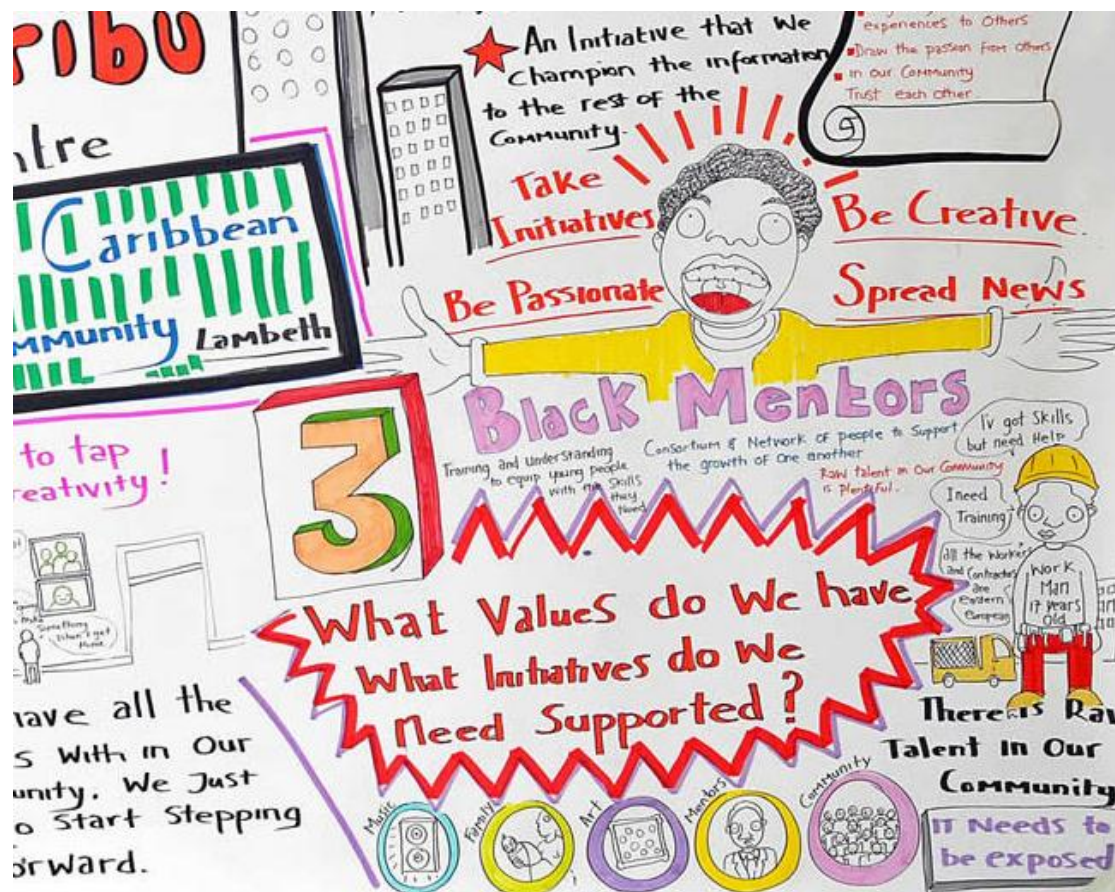 ribu
ntre
Caribbean
mmunity Lambeth
to tap
reativity!
Something
have all the
s With in Our
unity. We Just
o Start Stepping
orward.
An Initiative that We
Champion the information
to the rest of the
Community.
experiences to Others
Draw the passion from others
in our Community
Trust each other.
Take
Initiatives
Be Passionate
Be Creative.
Spread News
Black Mentors
Training and Understanding
to equip young people
with the Skills
they
Need
Consortium & Network of people to Support
the growth of one another
Raw talent in Our Community
is Plentiful.
I'v got Skills
but need Help
I need
Training
all the Workers
and Contractors
are
eastern
European
Work
Man
17 years
Old
3
What Values do We have
What Initiatives do We
Need Supported?
There is Raw
Talent In Our
Community
IT Needs to
be exposed
Music
Family
Art
Mentors
Community